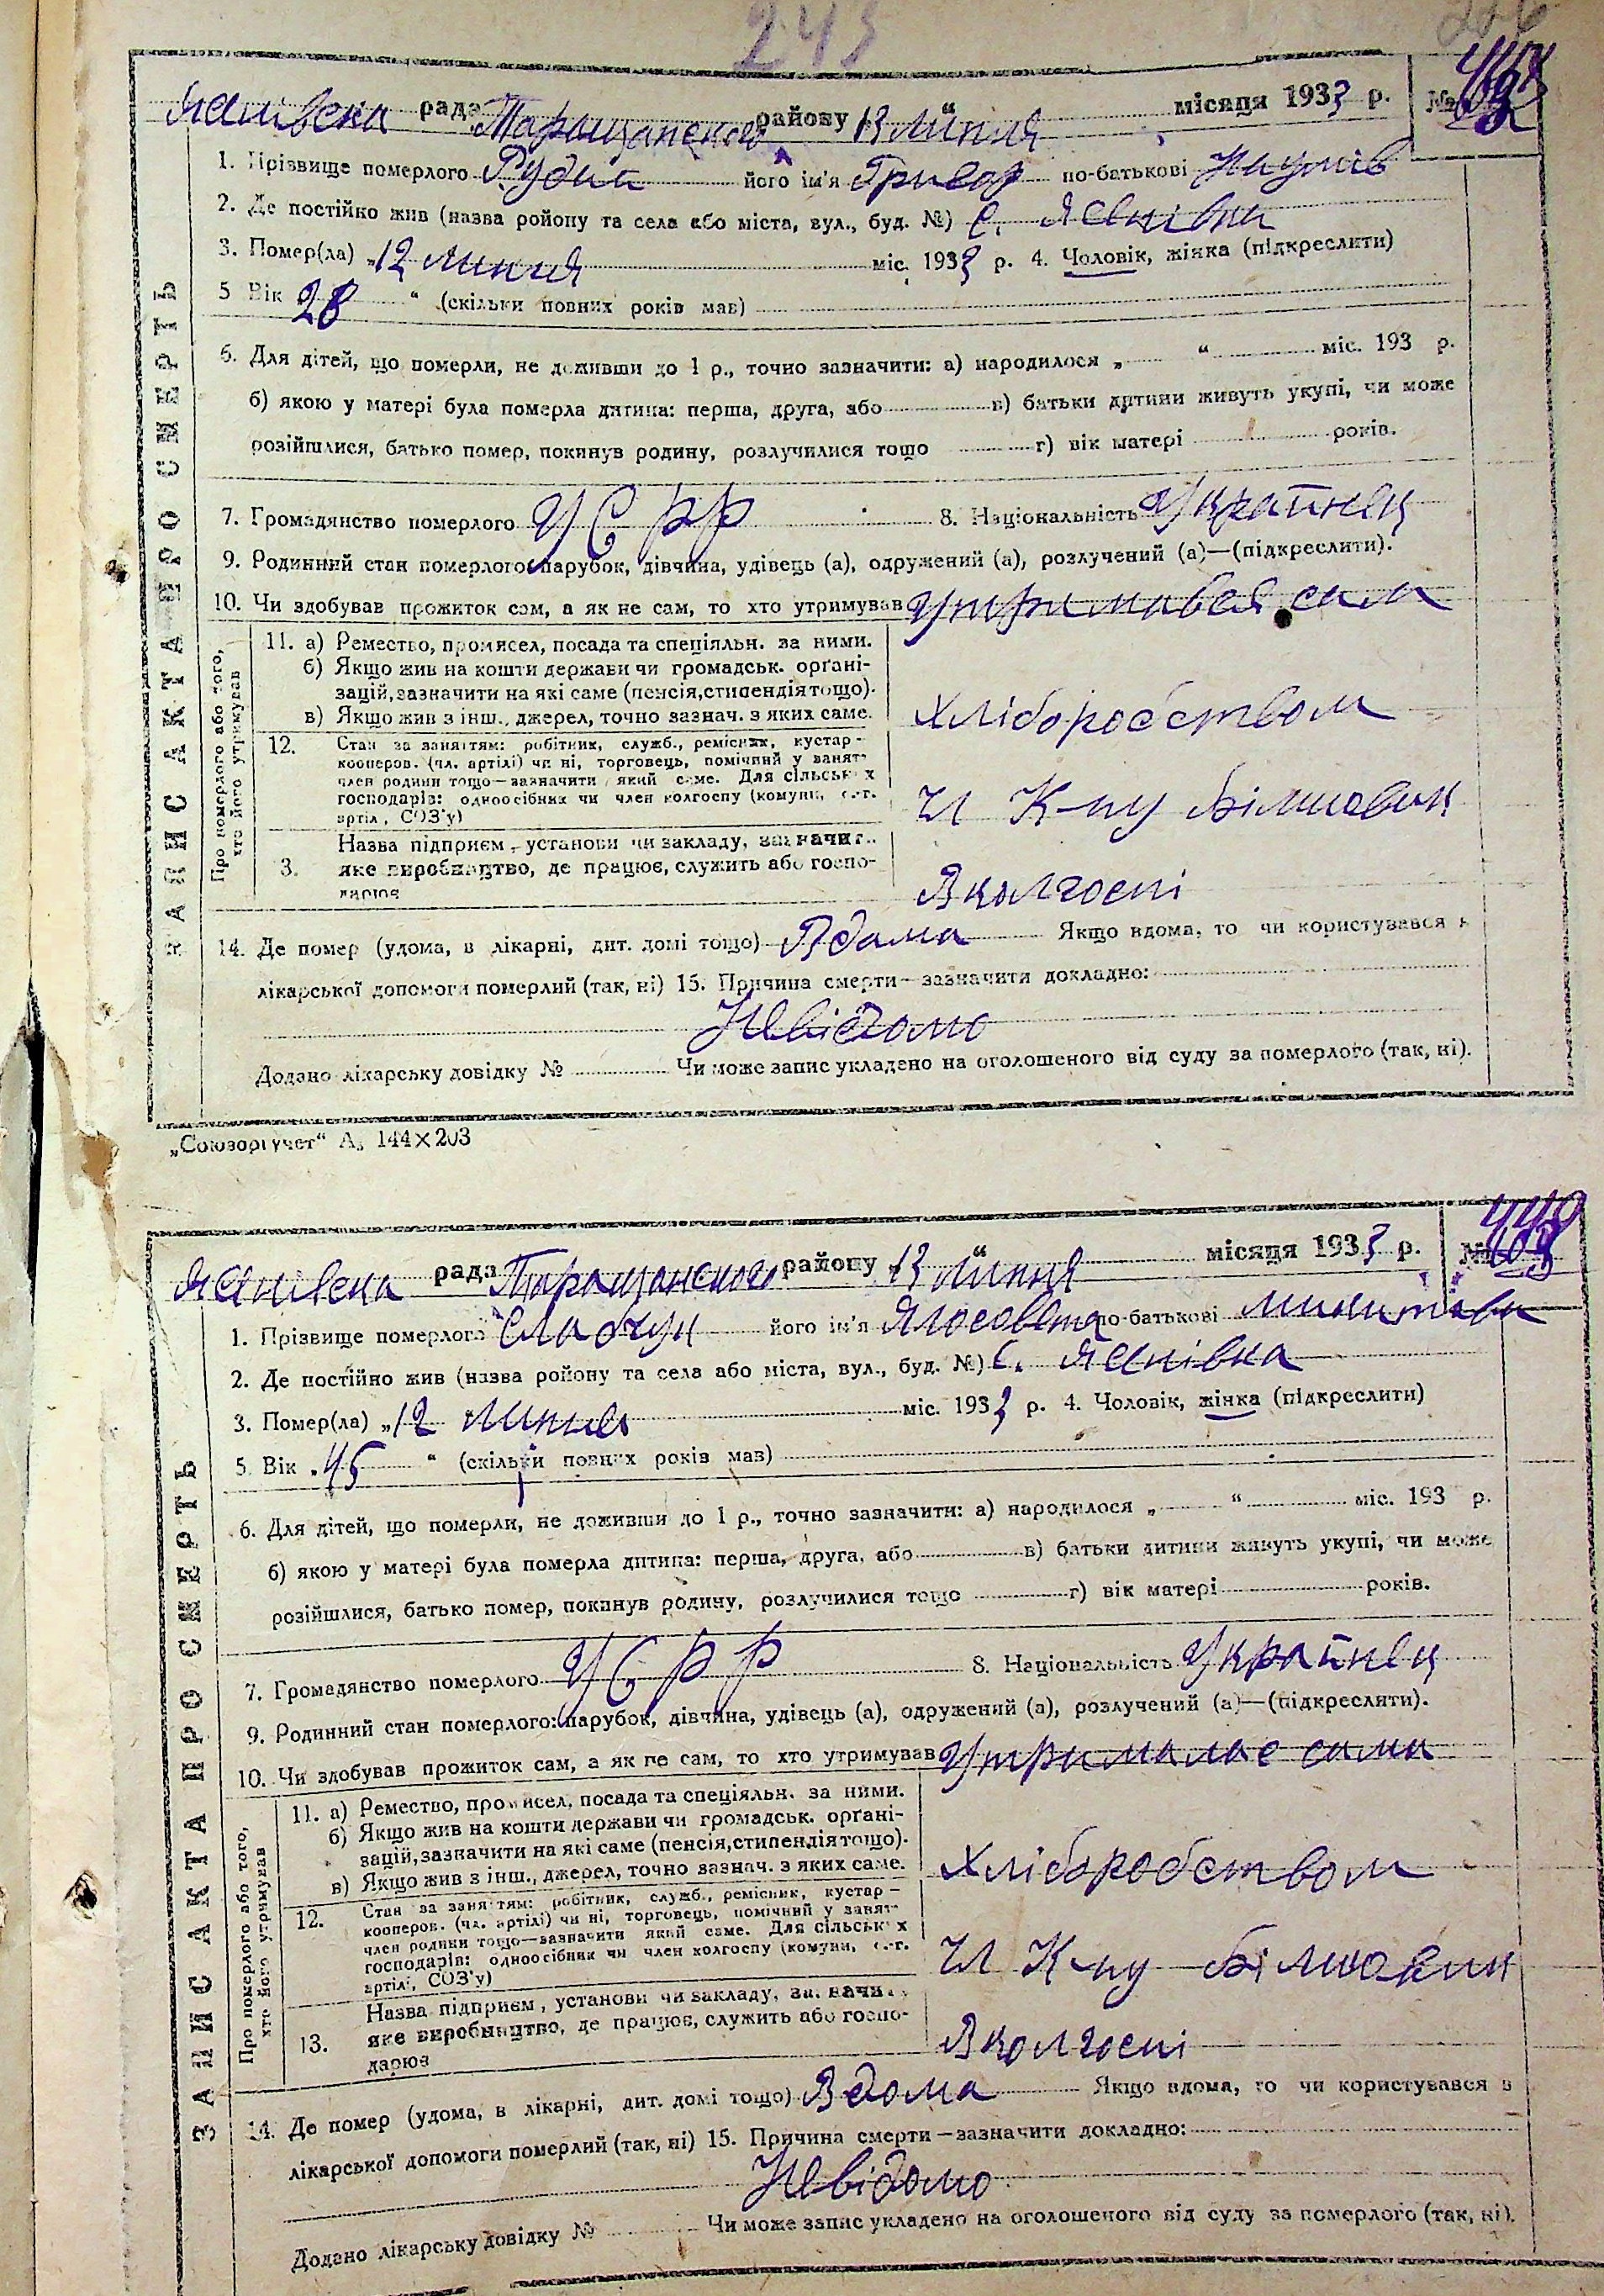 243
ЗАПИС АКТА ПРО СМЕРТЬ
Яснівська рада Таращанського району 13 Липня місяця 1933 р. №
1. Прізвище померлого Рудий його ім'я Григор по-батькові Наумів
2. Де постійко жив (назва ройону та села або міста, вул., буд. №) с. Яснівка
3. Помер(ла) „12 липня міс. 1933 р. 4. Чоловік, жінка (підкреслити)
5 Вік 28 “ (скільки повних років мав)
6. Для дітей, що померли, не доживши до 1 р., точно зазначити: а) народилося „ “ міс. 193 р.
б) якою у матері була померла дитина: перша, друга, або в) батьки дитини живуть укупі, чи може
розійшлися, батько помер, покинув родину, розлучилися тощо г) вік матері років.
7. Громадянство померлого УСРР 8. Національність Українец
9. Родинний стан померлого: парубок, дівчина, удівець (а), одружений (а), розлучений (а)—(підкреслити).
10. Чи здобував прожиток сам, а як не сам, то хто утримував утримався сам
Про померлого або того, хто його утримував
11. а) Ремество, промисел, посада та спеціяльн. за ними.
б) Якщо жив на кошти держави чи громадськ. органі-
зацій, зазначити на які саме (пенсія, стипендія тощо).
в) Якщо жив з інш., джерел, точно зазнач. з яких саме.
хліборобством
12. Стан за заняттям: робітник, служб., ремісник, кустар-
кооперов. (чл. артілі) чи ні, торговець, помічний у занят-
член родини тощо—зазначити який саме. Для сільськ х
господарів: одноосібник чи член колгоспу (комуни, с.-г.
артіл, СОЗ'у)
Чл К-пу Більшовик
3. Назва підприєм, установи чи закладу, зазначит.
яке виробництво, де працює, служить або госпо-
дарює
В колгоспі
14. Де помер (удома, в лікарні, дит. домі тощо) Вдома Якщо вдома, то чи користувався з
лікарської допомоги померлий (так, ні) 15. Причина смерти—зазначити докладно:
Невідомо
Додано лікарську довідку № Чи може запис укладено на оголошеного від суду за померлого (так, ні).
„Союзоргучет“ А, 144×203
ЗАПИС АКТА ПРО СМЕРТЬ
Яснівська рада Таращанського району 13 липня місяця 1933 р. №
1. Прізвище померлого Сладчук його ім'я Ялосовета по-батькові Микитівна
2. Де постійно жив (назва ройону та села або міста, вул., буд. №) с. Яснівка
3. Помер(ла) „12 липня міс. 1933 р. 4. Чоловік, жінка (підкреслити)
5. Вік 45 “ (скільки повних років мав)
6. Для дітей, що померли, не доживши до 1 р., точно зазначити: а) народилося „ “ міс. 193 р.
б) якою у матері була померла дитина: перша, друга, або в) батьки дитини живуть укупі, чи може
розійшлися, батько помер, покинув родину, розлучилися тощо г) вік матері років.
7. Громадянство померлого УСРР 8. Національність Українец
9. Родинний стан померлого: парубок, дівчина, удівець (а), одружений (а), розлучений (а)—(підкреслити).
10. Чи здобував прожиток сам, а як не сам, то хто утримував утрималас сама
Про померлого або того, хто його утримував
11. а) Ремество, промисел, посада та спеціяльн. за ними.
б) Якщо жив на кошти держави чи громадськ. органі-
зацій, зазначити на які саме (пенсія, стипендія тощо).
в) Якщо жив з інш., джерел, точно зазнач. з яких саме.
хліборобством
12. Стан за заняттям: робітник, служб., ремісник, кустар-
кооперов. (чл. артілі) чи ні, торговець, помічний у занят-
член родини тощо—зазначити який саме. Для сільськ х
господарів: одноосібник чи член колгоспу (комуни, с.-г.
артілі, СОЗ'у)
Чл К-пу Більшовик
13. Назва підприєм, установи чи закладу, зазначи
яке виробництво, де працює, служить або госпо-
дарює
В колгоспі
14. Де помер (удома, в лікарні, дит. домі тощо) Вдома Якщо вдома, то чи користувався з
лікарської допомоги померлий (так, ні) 15. Причина смерти—зазначити докладно:
Невідомо
Додано лікарську довідку № Чи може запис укладено на оголошеного від суду за померлого (так, ні).